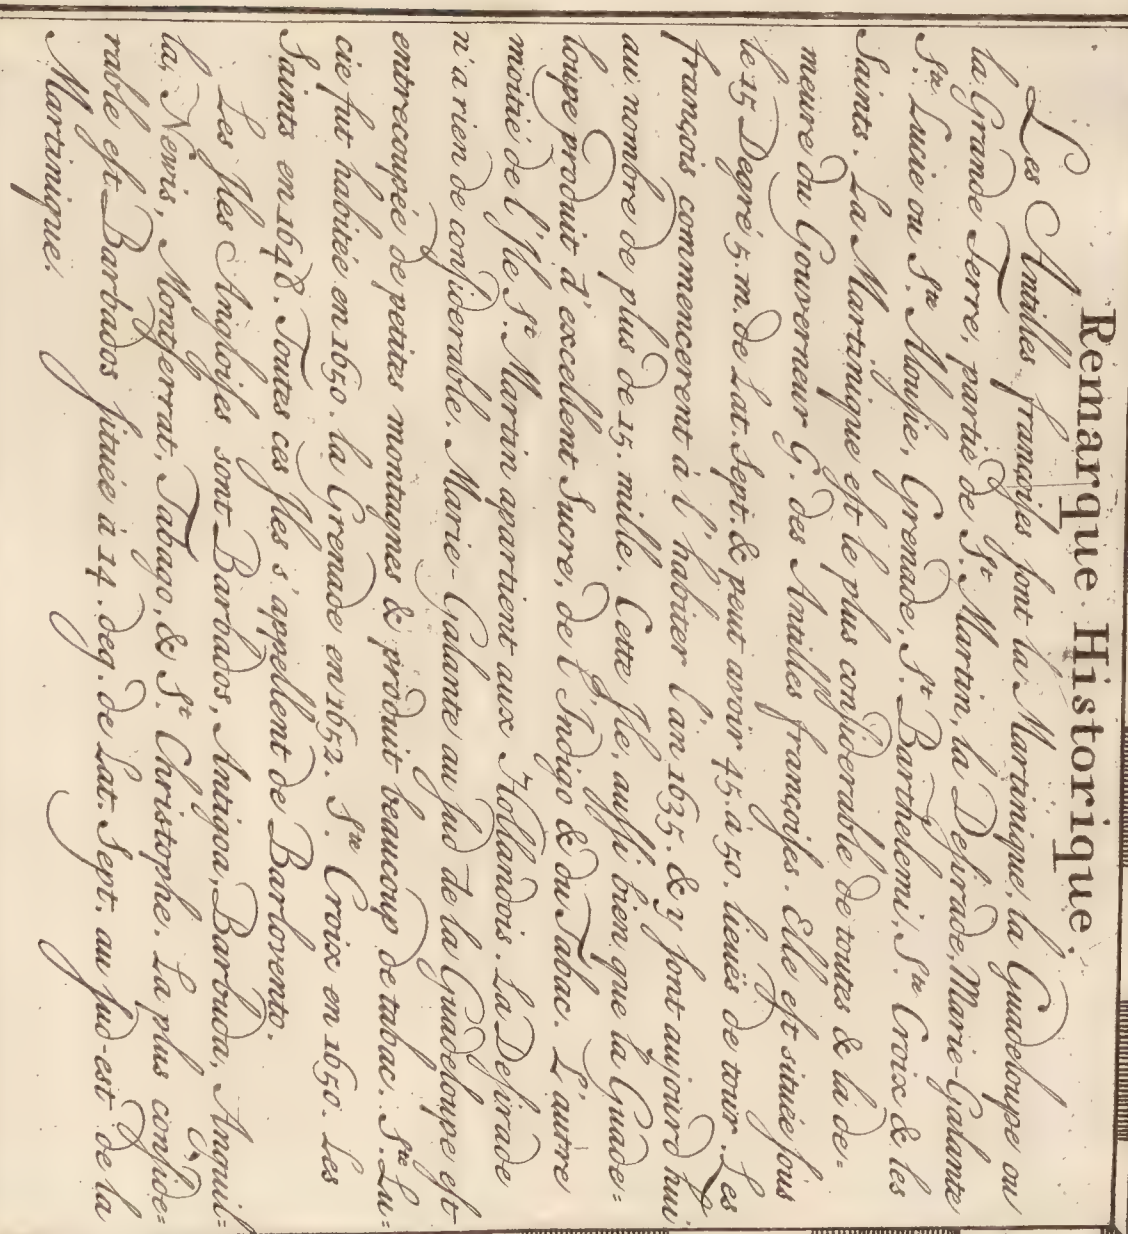 Remarque Historique.
Les Antilles françoises sont la Martinique, la Guadeloupe ou
la Grande Terre, partie de St. Martin, la Desirade, Marie-Galante
Ste. Lucie ou Ste Alousie, Grenade, St. Barthelemi, Ste Croix & les
Saints. La Martinique est le plus considerable de toutes & la de=
meure du Gouverneur G. des Antilles françoises. Elle est située sous
le 15 Degré 5. m. de Lat. Sept. & peut avoir 45. à 50. lieuës de tour. Les
françois commencerent à l'habiter l'an 1635. & y sont aujourd'hui
au nombre de plus de 15. mille. Cette Ile, aussi bien que la Guade=
loupe produit d'excellent Sucre, de l'Indigo & du Tabac. L'autre
moitié de l'Ile St. Martin apartient aux Hollandois. La Desirade
n'a rien de considerable. Marie-Galante au sud de la Guadeloupe est
entrecoupée de petites montagnes & produit beaucoup de tabac. Ste. Lu=
cie fut habitée en 1650. la Grenade en 1652. Ste. Croix en 1650. Les
Saints en 1648. Toutes ces Iles s'appellent de Barlovento.
Les Iles Angloises sont Barbados, Antigoa, Barbuda, Anguil=
la, Newis, Montserrat, Tabago, & St. Christophe. La plus conside=
rable est Barbados situeé à 14. deg. de Lat. Sept. au sud-est de la
Martinique.